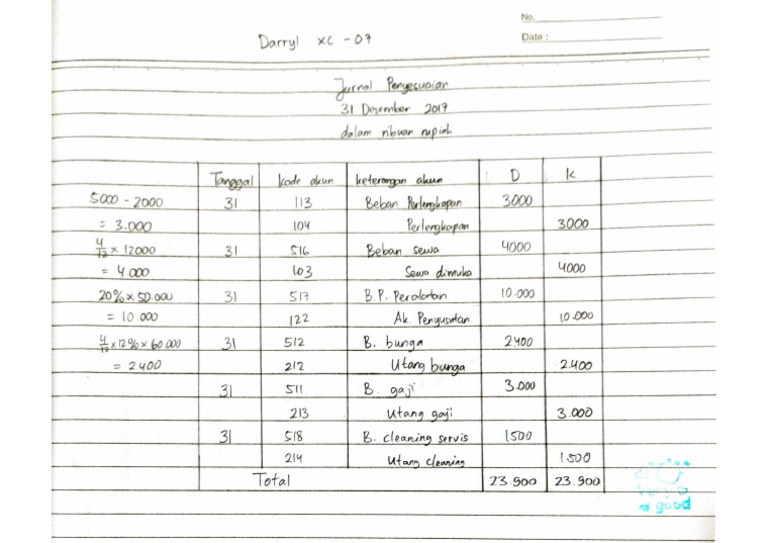 No.
Date :
Darryl XC - 07
Jurnal Penyesuaian
31 Desember 2017
dalam ribuan rupiah
Tanggal Kode akun keterangan akun D K
5000 - 2000 31 113 Beban Perlengkapan 3000
= 3.000 104 Perlengkapan 3000
4/12 x 12000 31 516 Beban sewa 4000
= 4.000 103 Sewa dimuka 4000
20% x 50.000 31 517 B.P. Peralatan 10.000
= 10.000 122 Ak. Penyusutan 10.000
4/12 x 12% x 60.000 31 512 B. bunga 2400
= 2400 212 Utang bunga 2.400
31 511 B. gaji 3.000
213 Utang gaji 3.000
31 518 B. cleaning servis 1500
214 Utang cleaning 1500
Total 23.900 23.900
Very
good